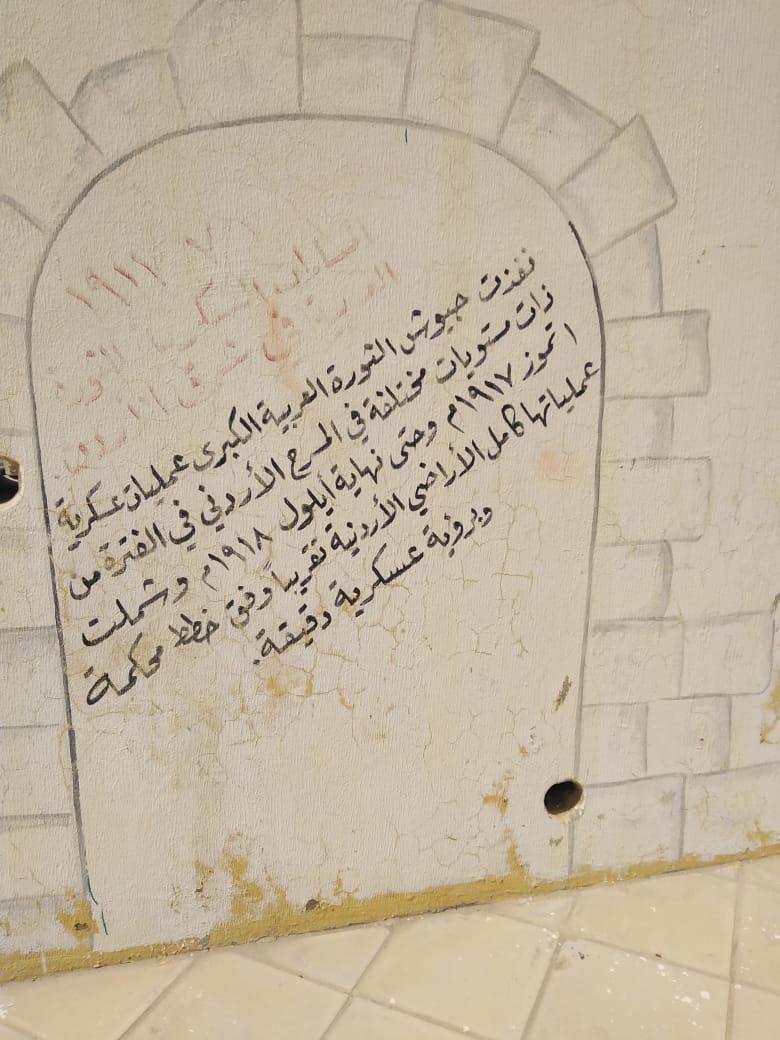 ١٩١٧
العسكرية للثورة
العربية في شرق الأردن
نفذت جيوش الثورة العربية الكبرى عمليات عسكرية
ذات مستويات مختلفة في المسرح الأردني في الفترة من
١ تموز ١٩١٧م وحتى نهاية أيلول ١٩١٨م وشملت
عملياتها كامل الأراضي الأردنية تقريباً وفق خطط محكمة
وبرؤية عسكرية دقيقة.